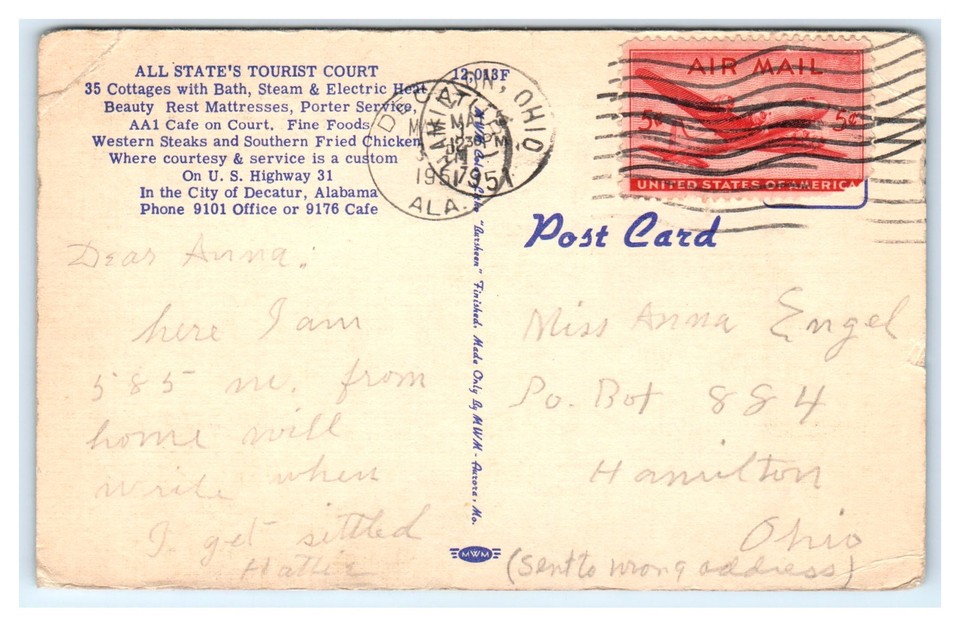 ALL STATE'S TOURIST COURT
35 Cottages with Bath, Steam & Electric Heat
Beauty Rest Mattresses, Porter Service,
AA1 Cafe on Court. Fine Foods
Western Steaks and Southern Fried Chicken
Where courtesy & service is a custom
On U. S. Highway 31
In the City of Decatur, Alabama
Phone 9101 Office or 9176 Cafe
12,013F
DECATUR
1951
ALA.
OHIO
1230 PM
1951
AIR MAIL
5¢ 5¢
UNITED STATES OF AMERICA
Post Card
"Bursheen" Finished. Made Only By MWM - Aurora, Mo.
MWM
Dear Anna:
here I am
585 m. from
home will
write when
I get sittled
Hattie
Miss Anna Engel
Po. Box 884
Hamilton
Ohio
(sent to wrong address)